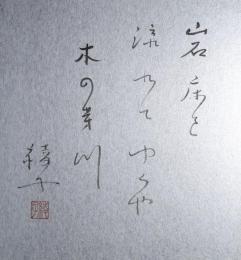 岩床を
流れてゆくや
木の芽川
綾子